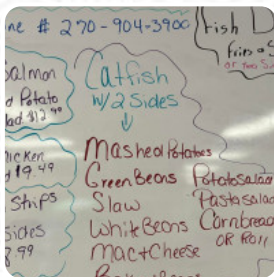 ne # 270-904-3900
Fish D
Fries o S
or Two S
Salmon
d Potato
lad $12.99
Catfish
w/2 Sides
icken
d $9.49
Strips
sides
.99
Mashed Potatoes
Green Beans
Slaw
White Beans
Mac+Cheese
Potato Salad
Pasta Salad
Cornbread
OR Roll